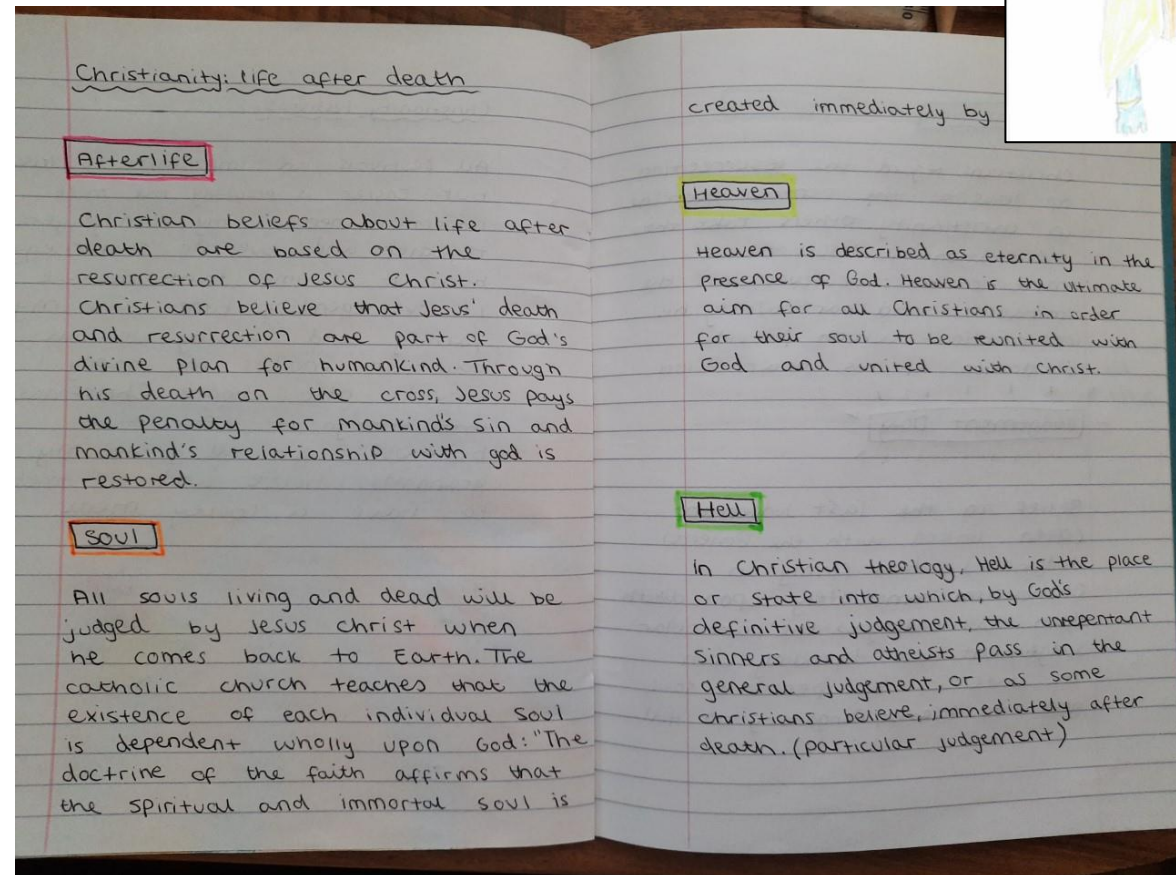 Christianity: life after death
Afterlife
Christian beliefs about life after
death are based on the
resurrection of Jesus Christ.
Christians believe that Jesus' death
and resurrection are part of God's
divine plan for humankind. Through
his death on the cross, Jesus pays
the penalty for mankind's sin and
mankind's relationship with god is
restored.
Soul
All souls living and dead will be
judged by Jesus christ when
he comes back to Earth. The
catholic church teaches that the
existence of each individual soul
is dependent wholly upon God: "The
doctrine of the faith affirms that
the spiritual and immortal soul is
created immediately by
Heaven
Heaven is described as eternity in the
presence of God. Heaven is the ultimate
aim for all Christians in order
for their soul to be reunited with
God and united with Christ.
Hell
In Christian theology, Hell is the place
or state into which, by God's
definitive judgement, the unrepentant
sinners and atheists pass in the
general judgement, or as some
christians believe, immediately after
death. (particular judgement)